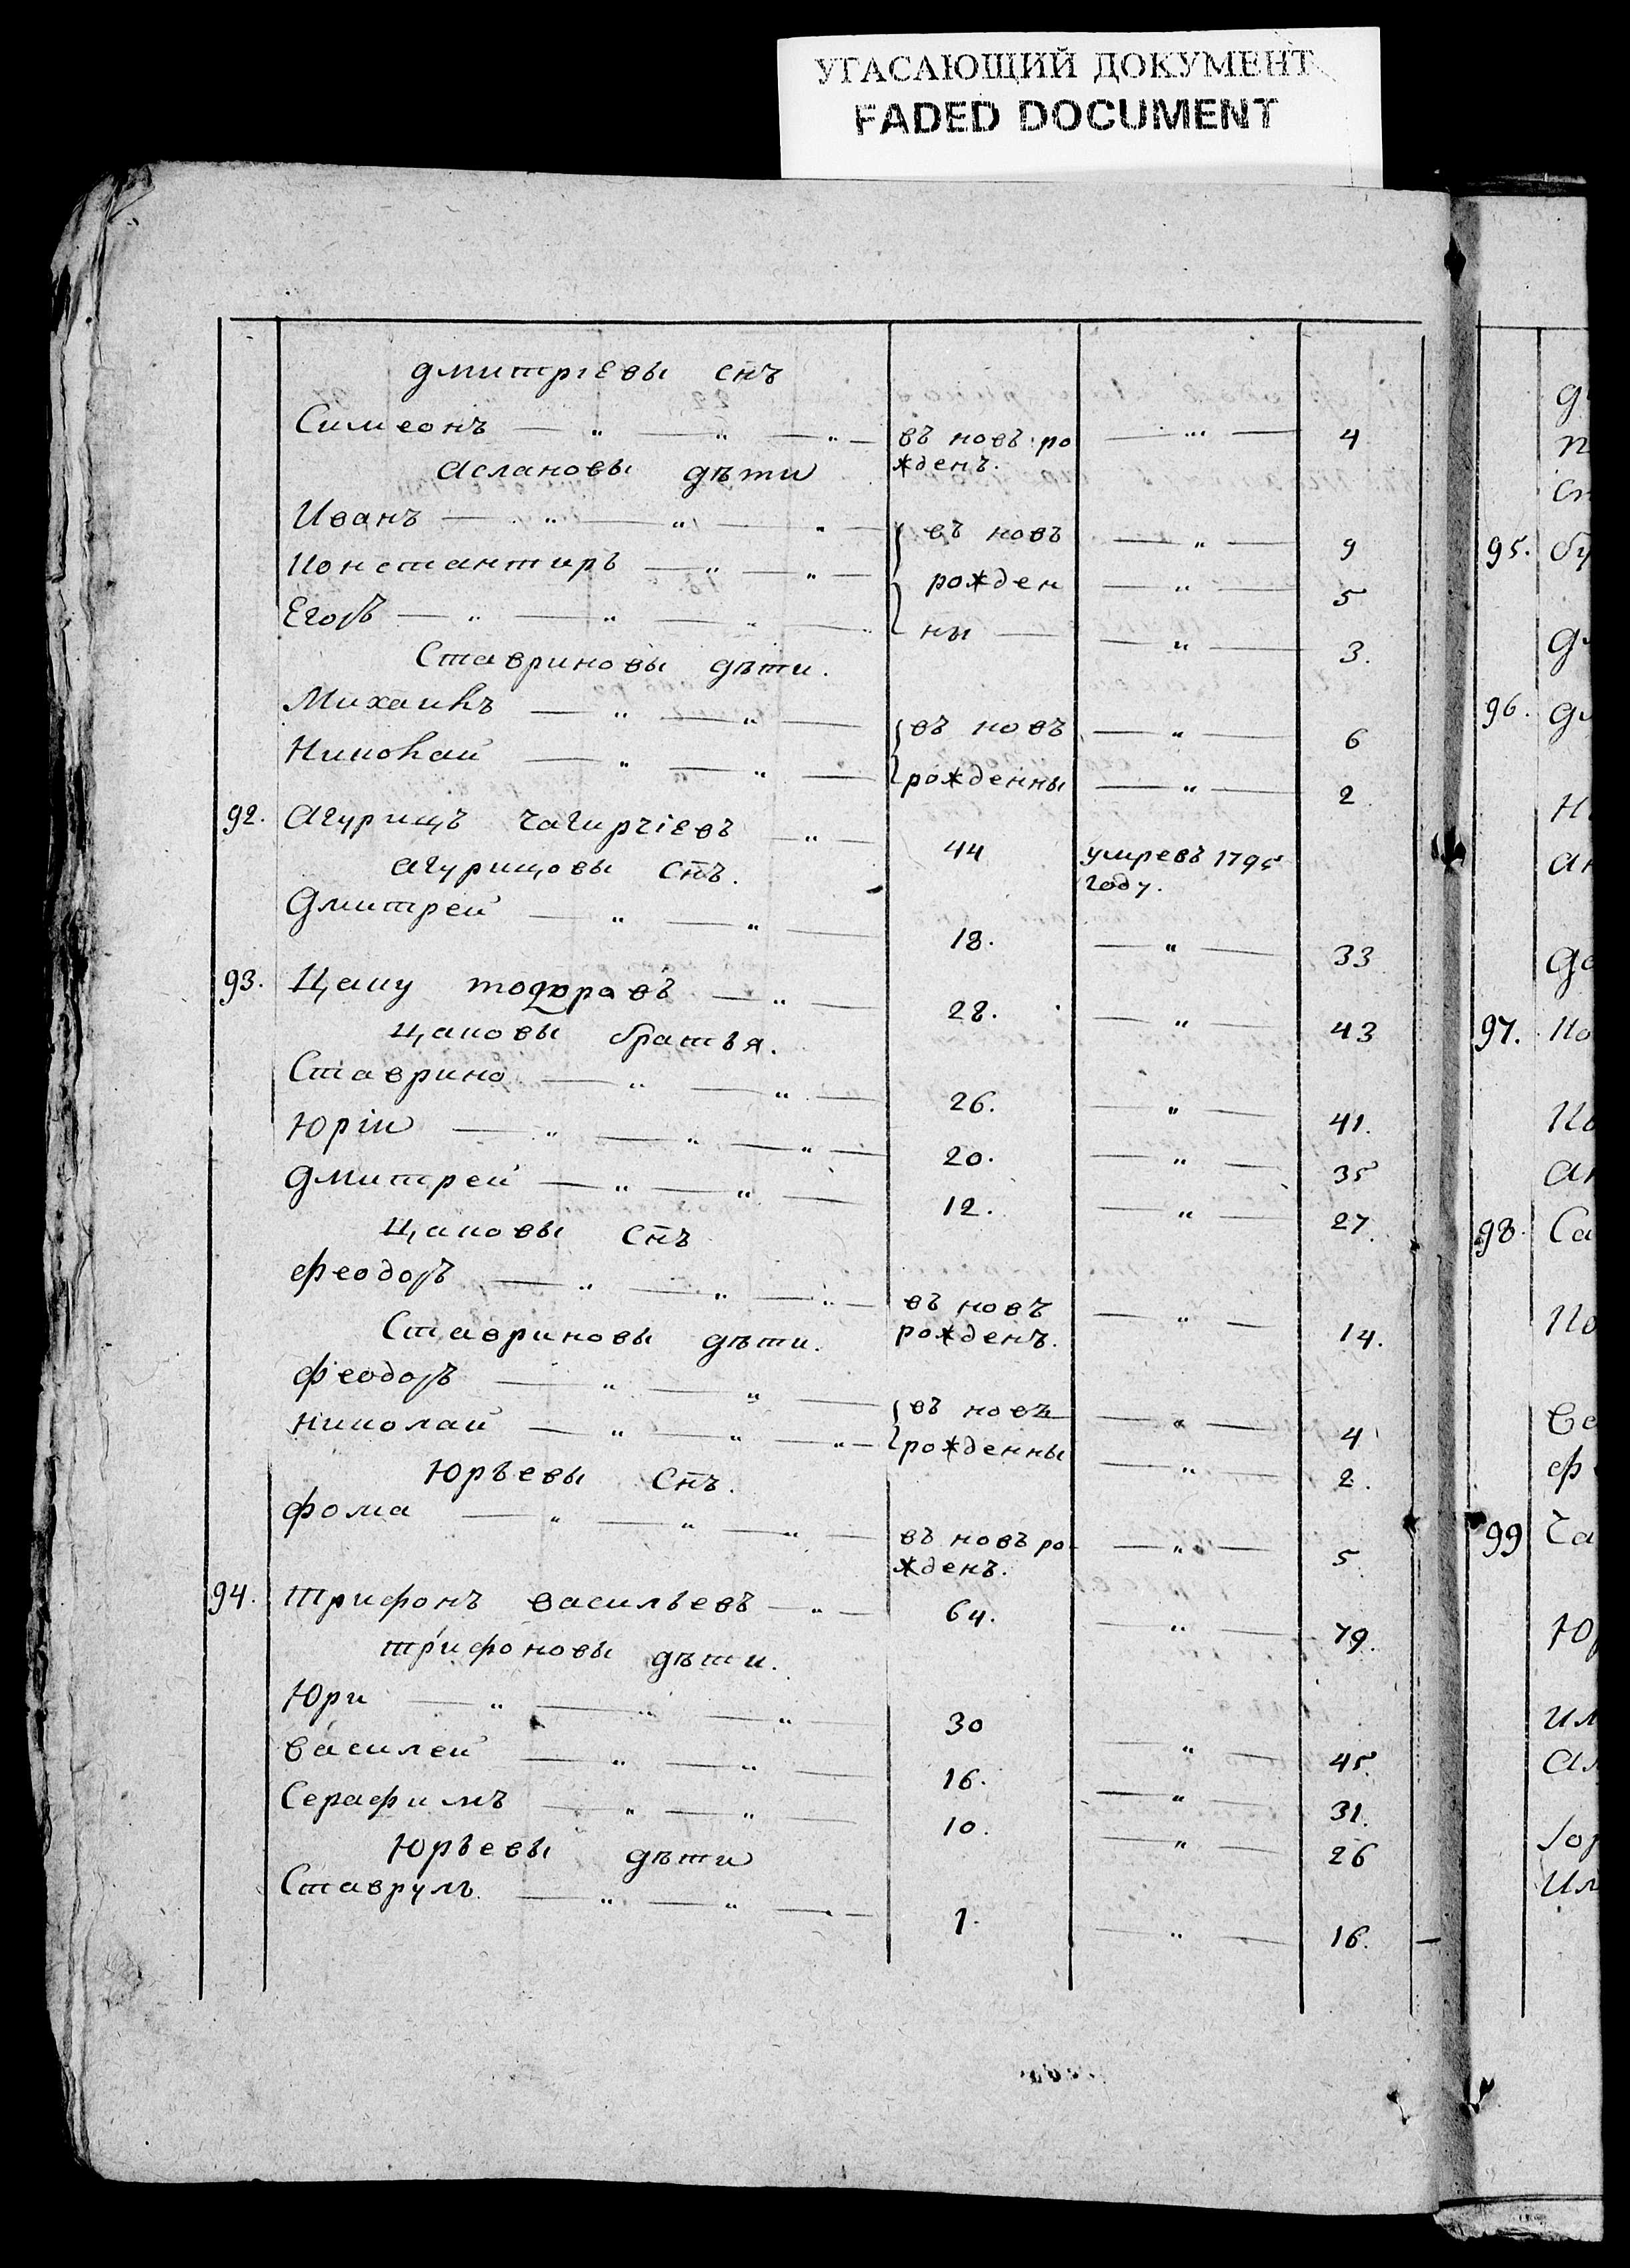 УГАСАЮЩИЙ ДОКУМЕНТ
FADED DOCUMENT
дмитрIевы снъ
Симеонъ — „ — „ — „ — въ новъ ро — „ — 4
жденъ.
аслановы дѣти
Иванъ — „ — „ — „ — въ новъ — „ — 9
Константинъ — „ — „ — рожден — „ — 5
Егоръ — „ — „ — „ — ны — „ — 3.
Ставриновы дѣти.
Михаилъ — „ — „ — въ новъ — „ — 6
Николай — „ — „ — рожденны — „ — 2
92. Агурицъ чагирчiевъ — „ — 44 умре въ 1795
году.
агурицовы снъ.
Дмитрей — „ — „ — 18. — „ — 33
93. Цаку тодоровъ — „ — 28. — „ — 43
цаковы братья.
Ставрино — „ — „ — 26. — „ — 41.
Юрiи — „ — „ — „ — 20. — „ — 35
Дмитрей — „ — „ — 12. — „ — 27.
цаковы снъ
феодоръ — „ — „ — „ — въ новъ — „ — 14.
рожденъ.
Ставриновы дѣти.
феодоръ — „ — „ — въ новъ — „ — 4
николай — „ — „ — „ — рожденны — „ — 2.
Юрьевы снъ.
фома — „ — „ — „ — въ новъ ро — „ — 5
жденъ.
94. Трифонъ васильевъ — „ — 64. — „ — 79.
трифоновы дѣти.
Юри — „ — „ — „ — 30 — „ — 45.
Василей — „ — „ — 16. — „ — 31.
Серафимъ — „ — „ — 10. — „ — 26
Юрьевы дѣти
Ставрулъ — „ — „ — 1. — „ — 16.
95.
96.
97.
98.
99